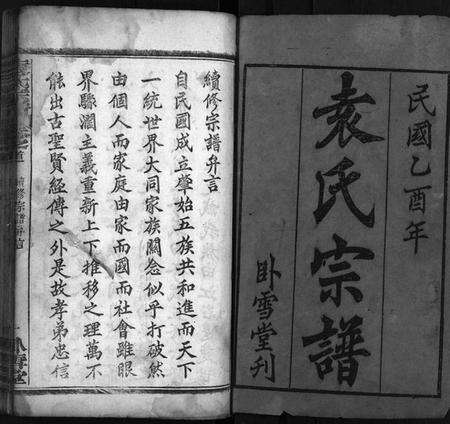 民國乙酉年
袁氏宗譜
卧雪堂刋
續修宗譜弁言
自民國成立肇始五族共和進而天下
一統世界大同家族關念似乎打破然
由個人而家庭由家而國而社會雖眼
界縣濶主義重新上下推移之理萬不
能出古聖賢經傳之外是故孝弟忠信